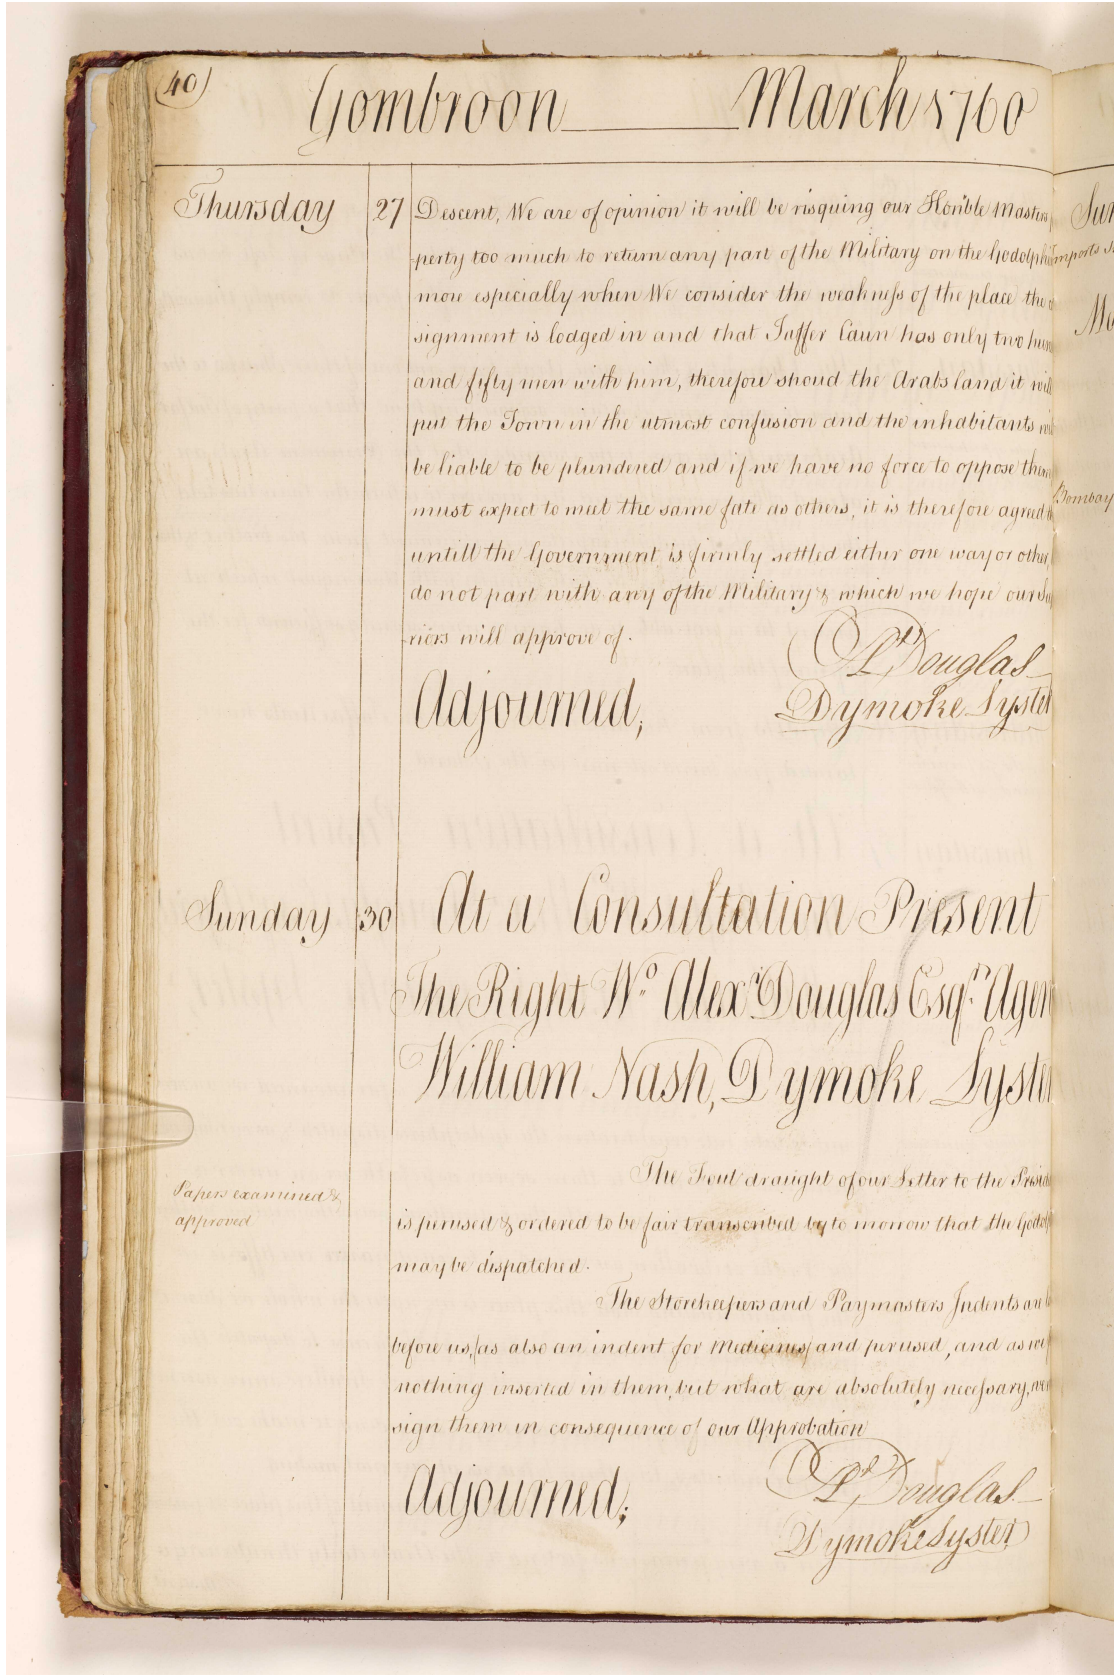 40
Gombroon March 1760
Thursday 27 Descent, We are of opinion it will be risquing our Honble Masters
perty too much to return any part of the Military on the Godolph
more especially when We consider the weakness of the place the
signment is lodged in and that Jaffer Caun has only two hun
and fifty men with him, therefore shoud the Arabs land it will
put the Town in the utmost confusion and the inhabitants
be liable to be plundered and if we have no force to oppose them
must expect to meet the same fate as others, it is therefore agreed
untill the Government is firmly settled either one way or other,
do not part with any of the Military & which we hope our Su
riors will approve of.
Adjourned,
Alr Douglas
Dymoke Lyster
Sunday 30 At a Consultation Present
The Right Wo. Alexr Douglas Esqr. Agen
William Nash, Dymoke Lyster
Papers examined &
approved
The Foul draught of our Letter to the Presid
is perused & ordered to be fair transcribed by to morrow that the Godol
may be dispatched.
The Storekeepers and Paymasters Indents are
before us, (as also an indent for Medicines) and perused, and as we
nothing inserted in them, but what are absolutely necessary, we
sign them in consequence of our Approbation
Adjourned;
Alr Douglas
Dymoke Lyster
Sun
Imports
Mo
Bombay